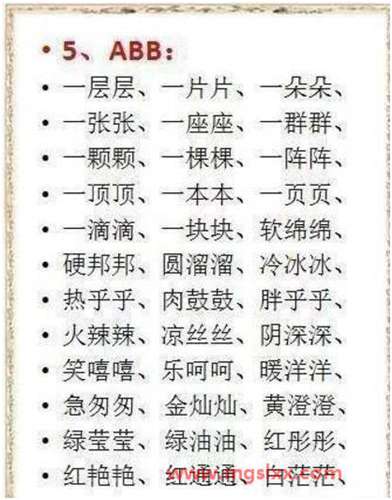 • 5、ABB：
• 一层层、一片片、一朵朵、
• 一张张、一座座、一群群、
• 一颗颗、一棵棵、一阵阵、
• 一顶顶、一本本、一页页、
• 一滴滴、一块块、软绵绵、
• 硬邦邦、圆溜溜、冷冰冰、
• 热乎乎、肉鼓鼓、胖乎乎、
• 火辣辣、凉丝丝、阴深深、
• 笑嘻嘻、乐呵呵、暖洋洋、
• 急匆匆、金灿灿、黄澄澄、
• 绿莹莹、绿油油、红彤彤、
• 红艳艳、红通通、白茫茫、